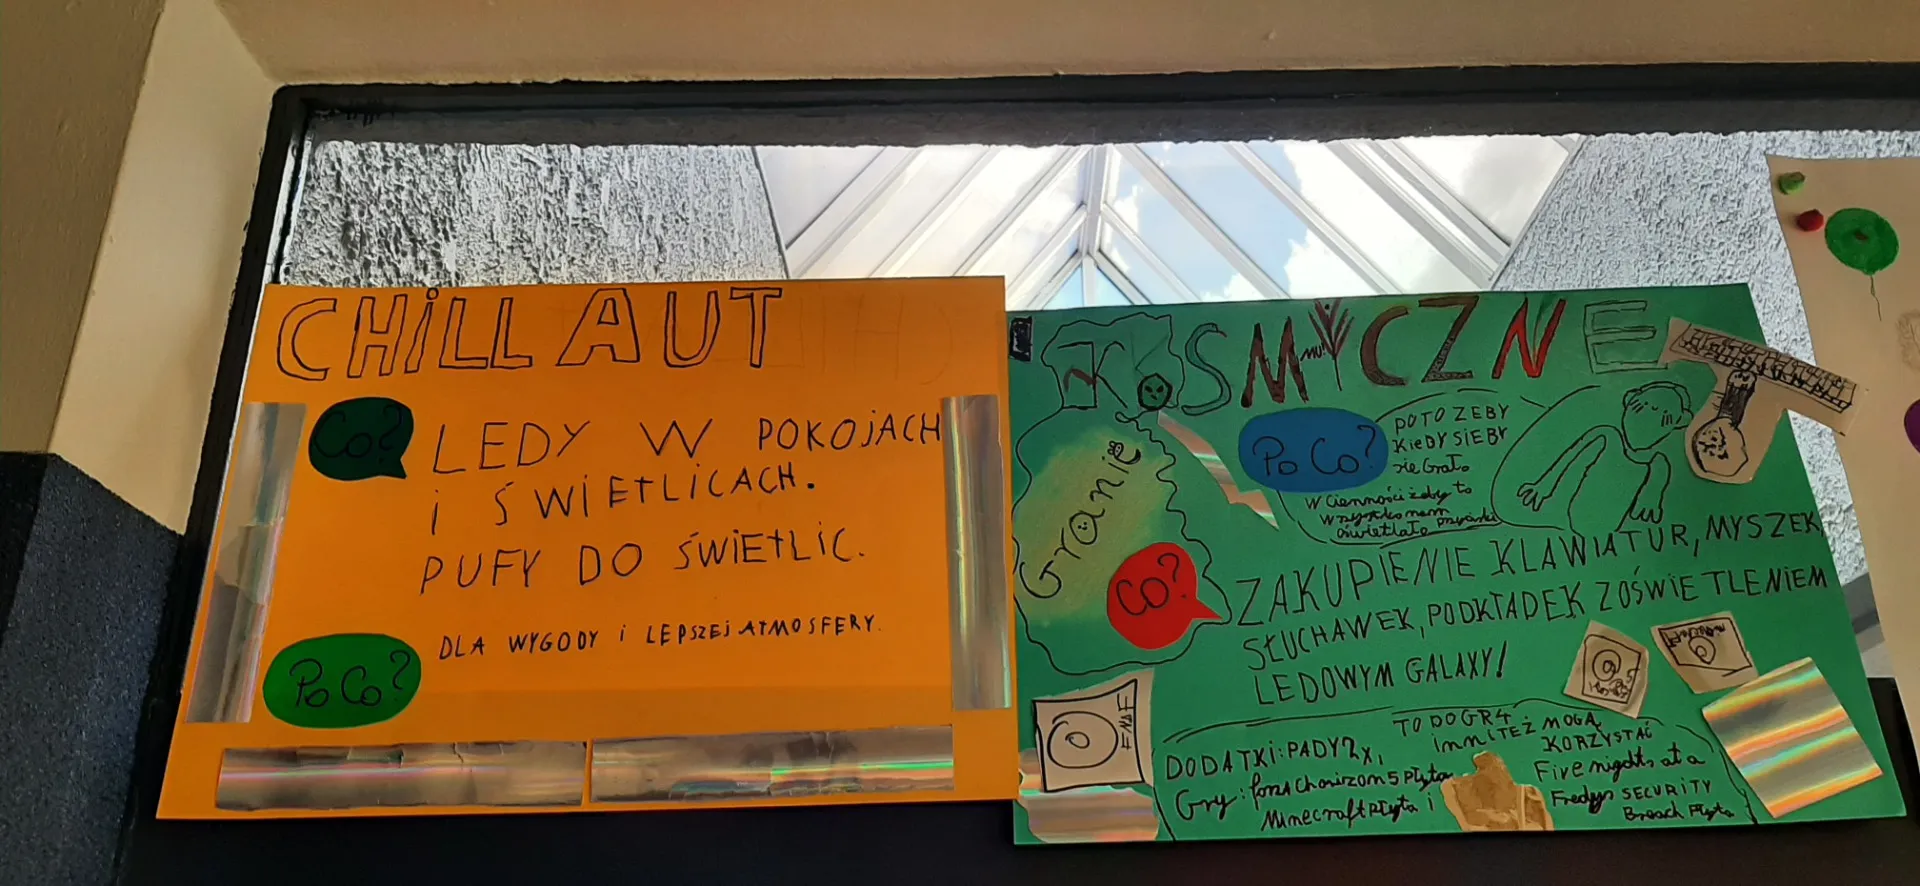 CHILL AUT
Co?
LEDY W POKOJACH
i ŚWIETLICACH.
PUFY DO ŚWIETLIC.
Po Co?
DLA WYGODY i LEPSZEJ ATMOSFERY.
KOSMYCZNE
Granie
Po Co?
POTO ZEBY
KiEDY SIEBY
nie Grało
W Ciemności żeby to
wszystko nam
oświetlało
Co?
ZAKUPIENIE KLAWIATUR, MYSZEK,
SŁUCHAWEK, PODKŁADEK Z OŚWIETLENIEM
LEDOWYM GALAXY!
FNAF
DODATKI: PADY 2x,
Gry: forza Chorizon 5 Płyta
Minecraft Płyta i
TO DO GR4
inni TEŻ MOGĄ
KORZYSTAĆ
Five nights at a
Fredys SECURITY
Breach Płyta